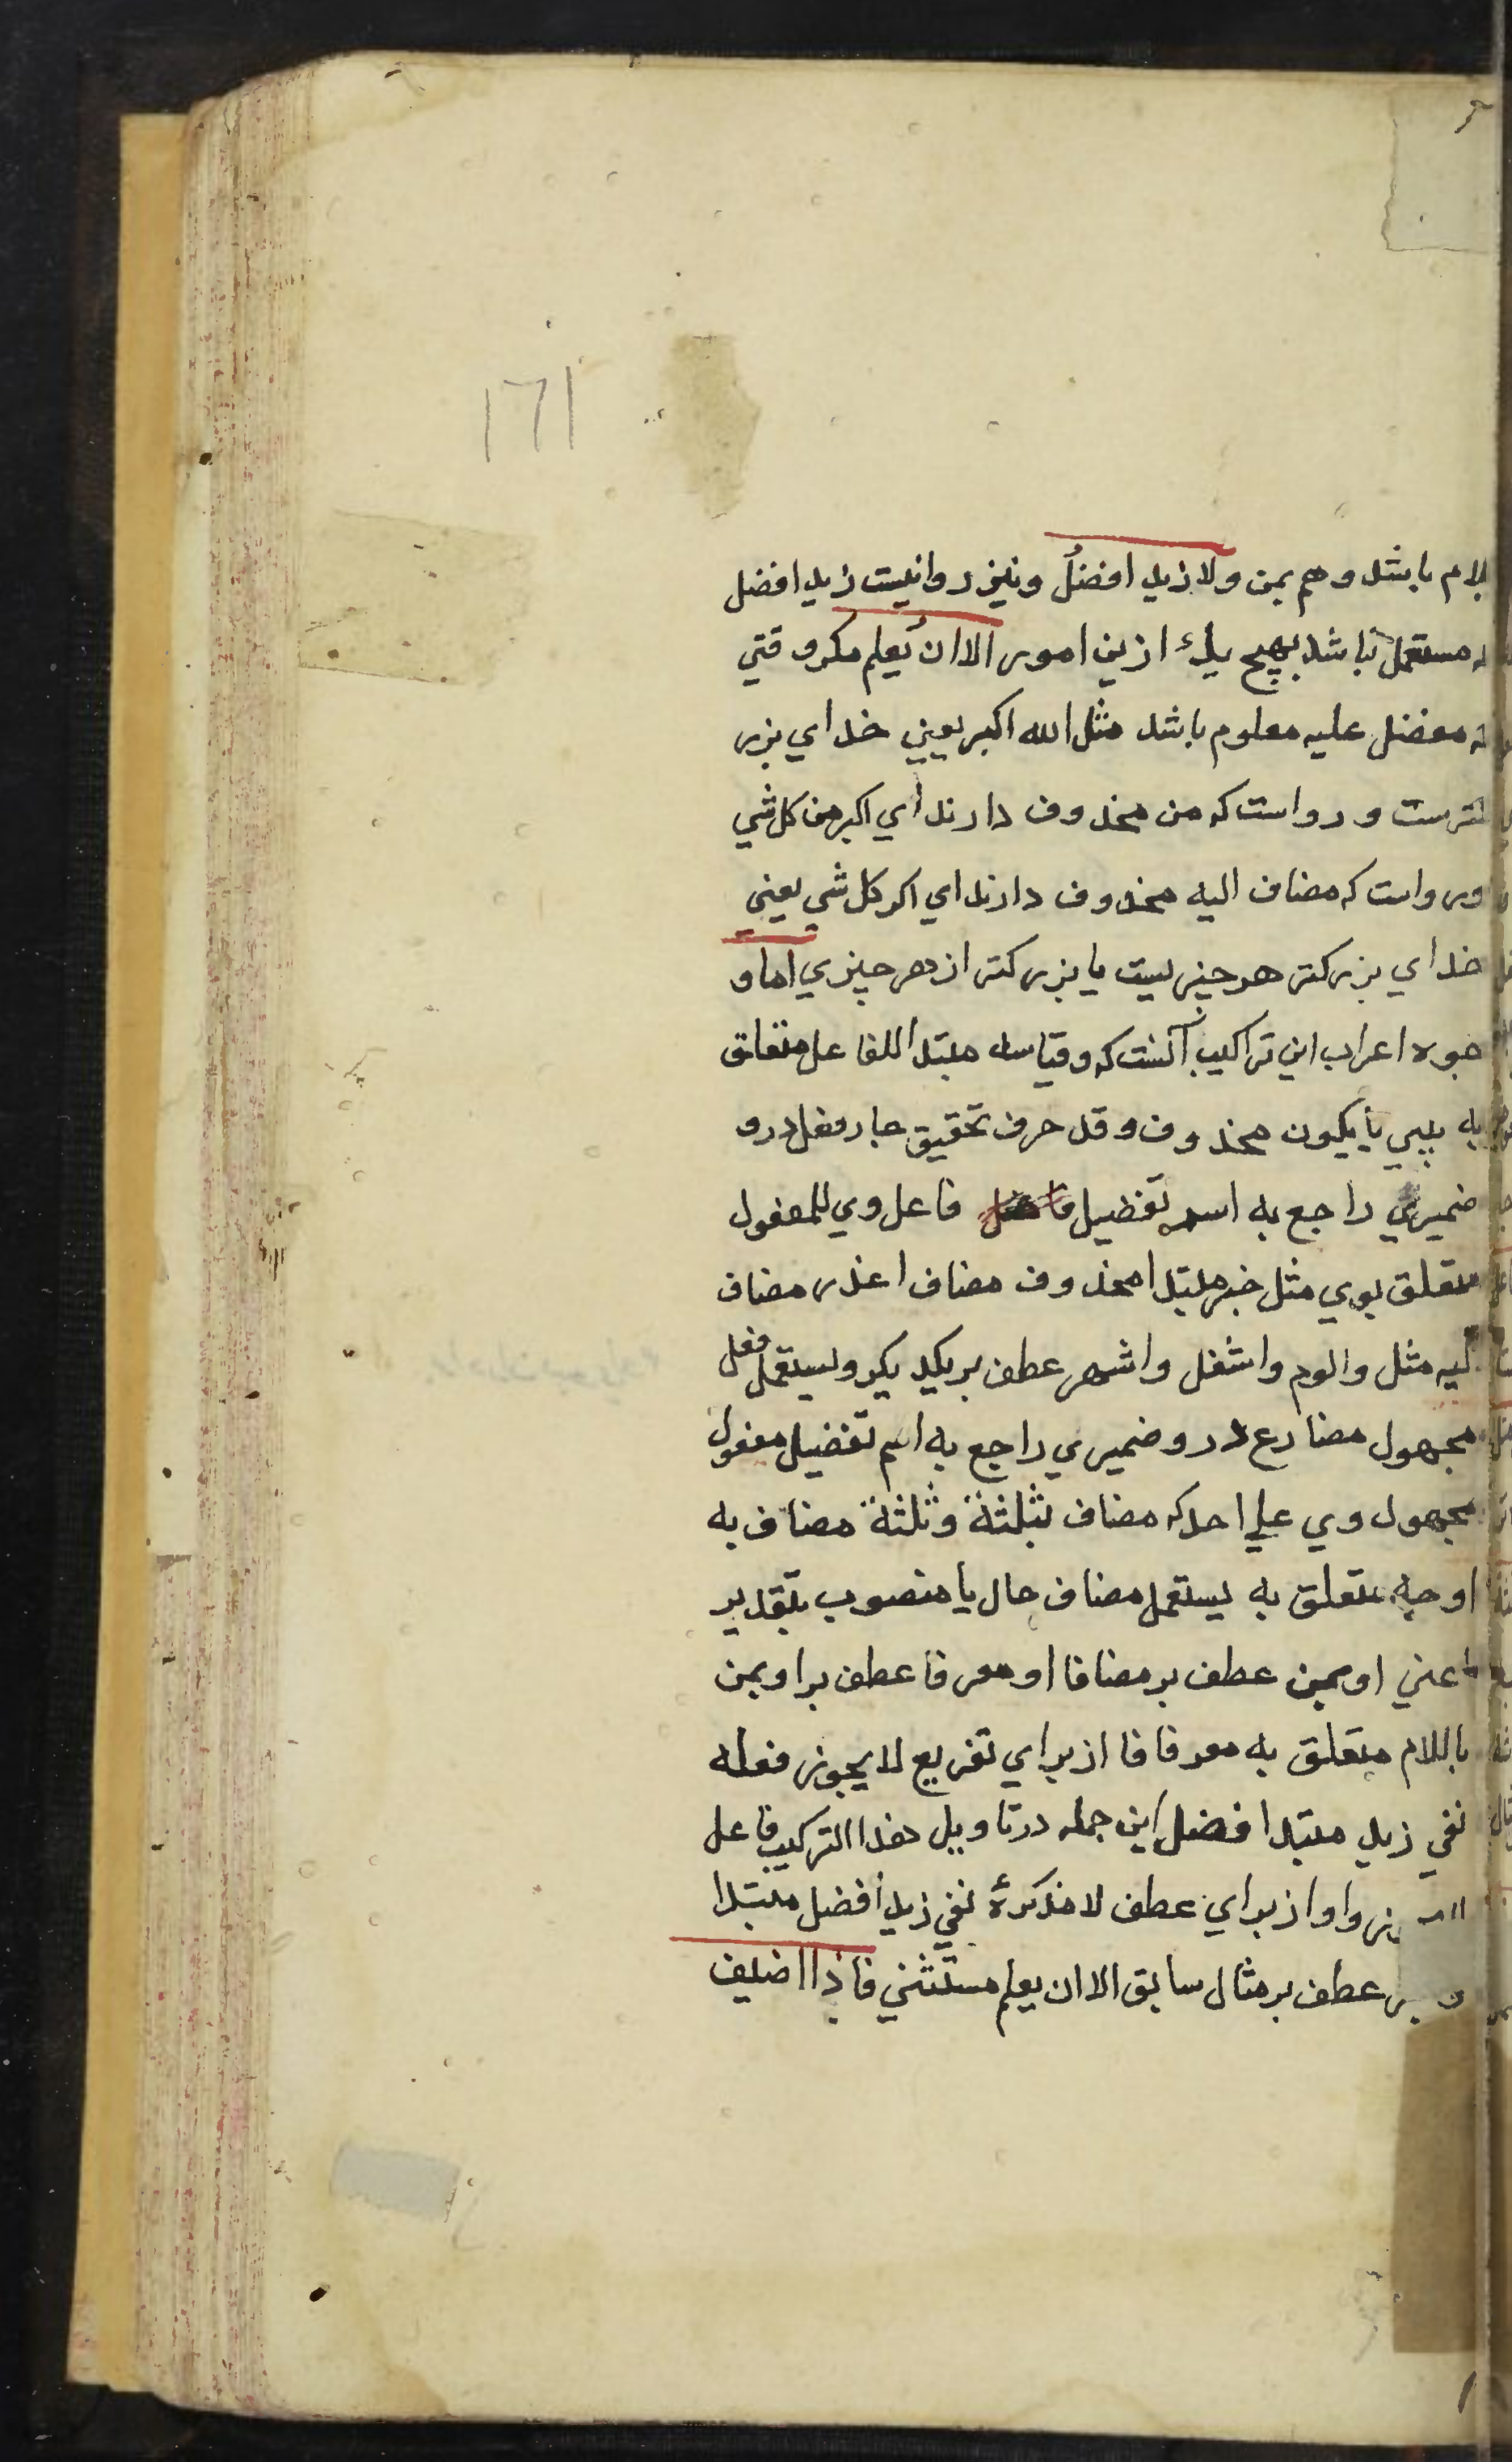 ١٦١
بلام باشد وهم بمن ولا زيد افضلُ ونيز روانيست زيد افضل
كه مستعمل نباشد بهيچ يكے ازين امور الا ان يُعلم مكر وقتي
كه مفضل عليه معلوم باشد مثل الله اكبر يعني خداي بزر
كترست ورواست كه من محذوف دارند اي اكبر من كل شي
ورواست كه مضاف اليه محذوف دارند اي اكبر كل شي يعني
خداي بزركتر هر چيزيست يا بزركتر از هر چيزي اما و
جوه اعراب اين تراكيب آنست كه وقياسه مبتدا للفاعل متعلق
به يبني يا يكون محذوف وقد حرف تحقيق جار فعل درو
ضميري راجع به اسم تفضيل فاعل وي للمفعول
متعلق بوي مثل خبر مبتدا محذوف مضاف اعذر مضاف
اليه مثل والوم واشغل واشهر عطف بر يكديكر ويستعمل فعل
مجهول مضارع درو ضميري راجع به اسم تفضيل مفعول
مجهول وي علي احد كه مضاف بثلثة وثلثة مضاف به
اوجه متعلق به يستعمل مضاف حال يا منصوب بتقدير
اعني او بمن عطف بر مضافا او معرفا عطف براو بمن
باللام متعلق به معرفا فا از براي تفريع لا يجوز فعله
نفي زيد مبتدا افضل اين جمله درتاويل هذا التركيب فاعل
واو از براي عطف لا مذكرهٔ نفي زيد أفضل مبتدا
عطف بر مثال سابق الا ان يعلم مستثني فاذا اضيف